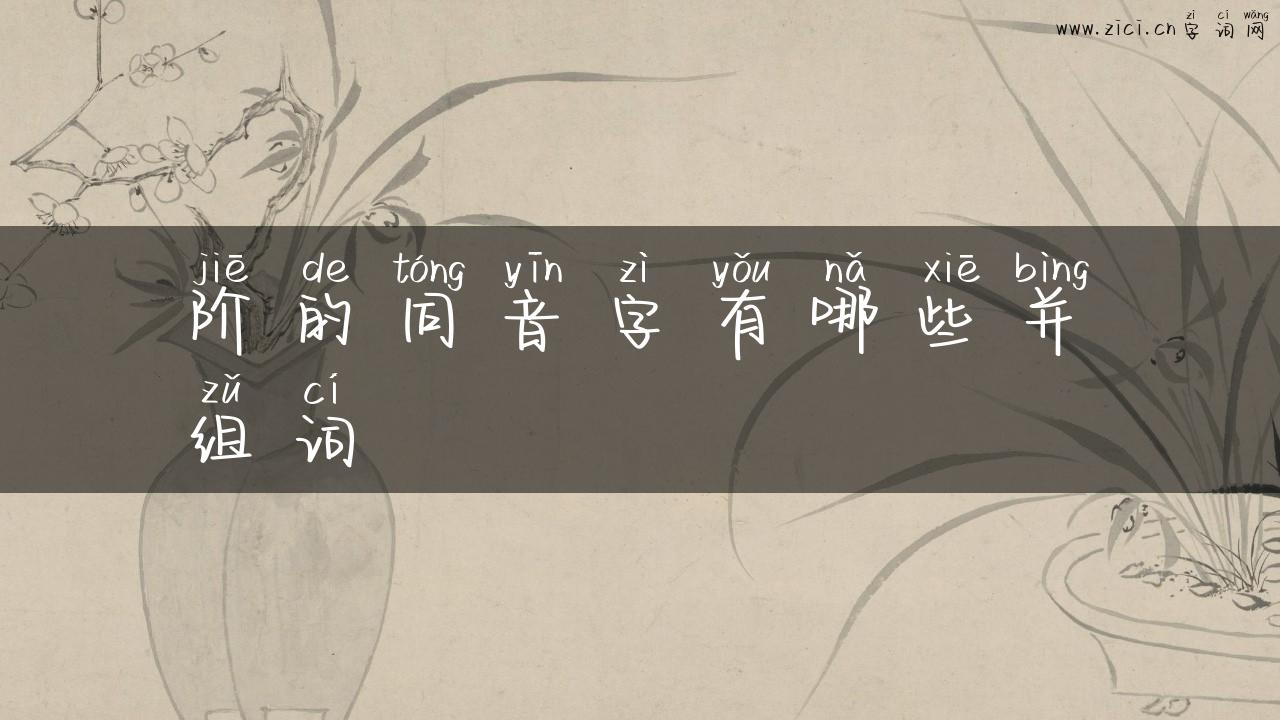 zì cí wǎng
www.zici.cn字词网
jiē de tóng yīn zì yǒu nǎ xiē bìng
阶的同音字有哪些并
zǔ cí
组词